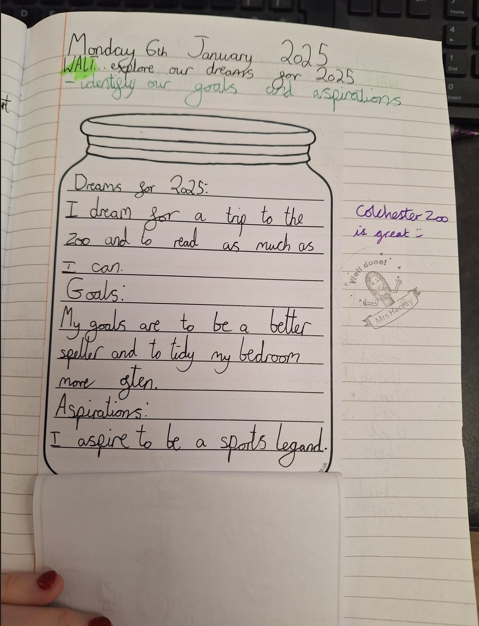 Monday 6th January 2025
WALT... explore our dreams for 2025
- identify our goals and aspirations
Dreams for 2025:
I dream for a trip to the
zoo and to read as much as
I can.
Goals:
My goals are to be a better
speller and to tidy my bedroom
more often.
Aspirations:
I aspire to be a sports legand.
Colchester Zoo
is great :)
Well done!